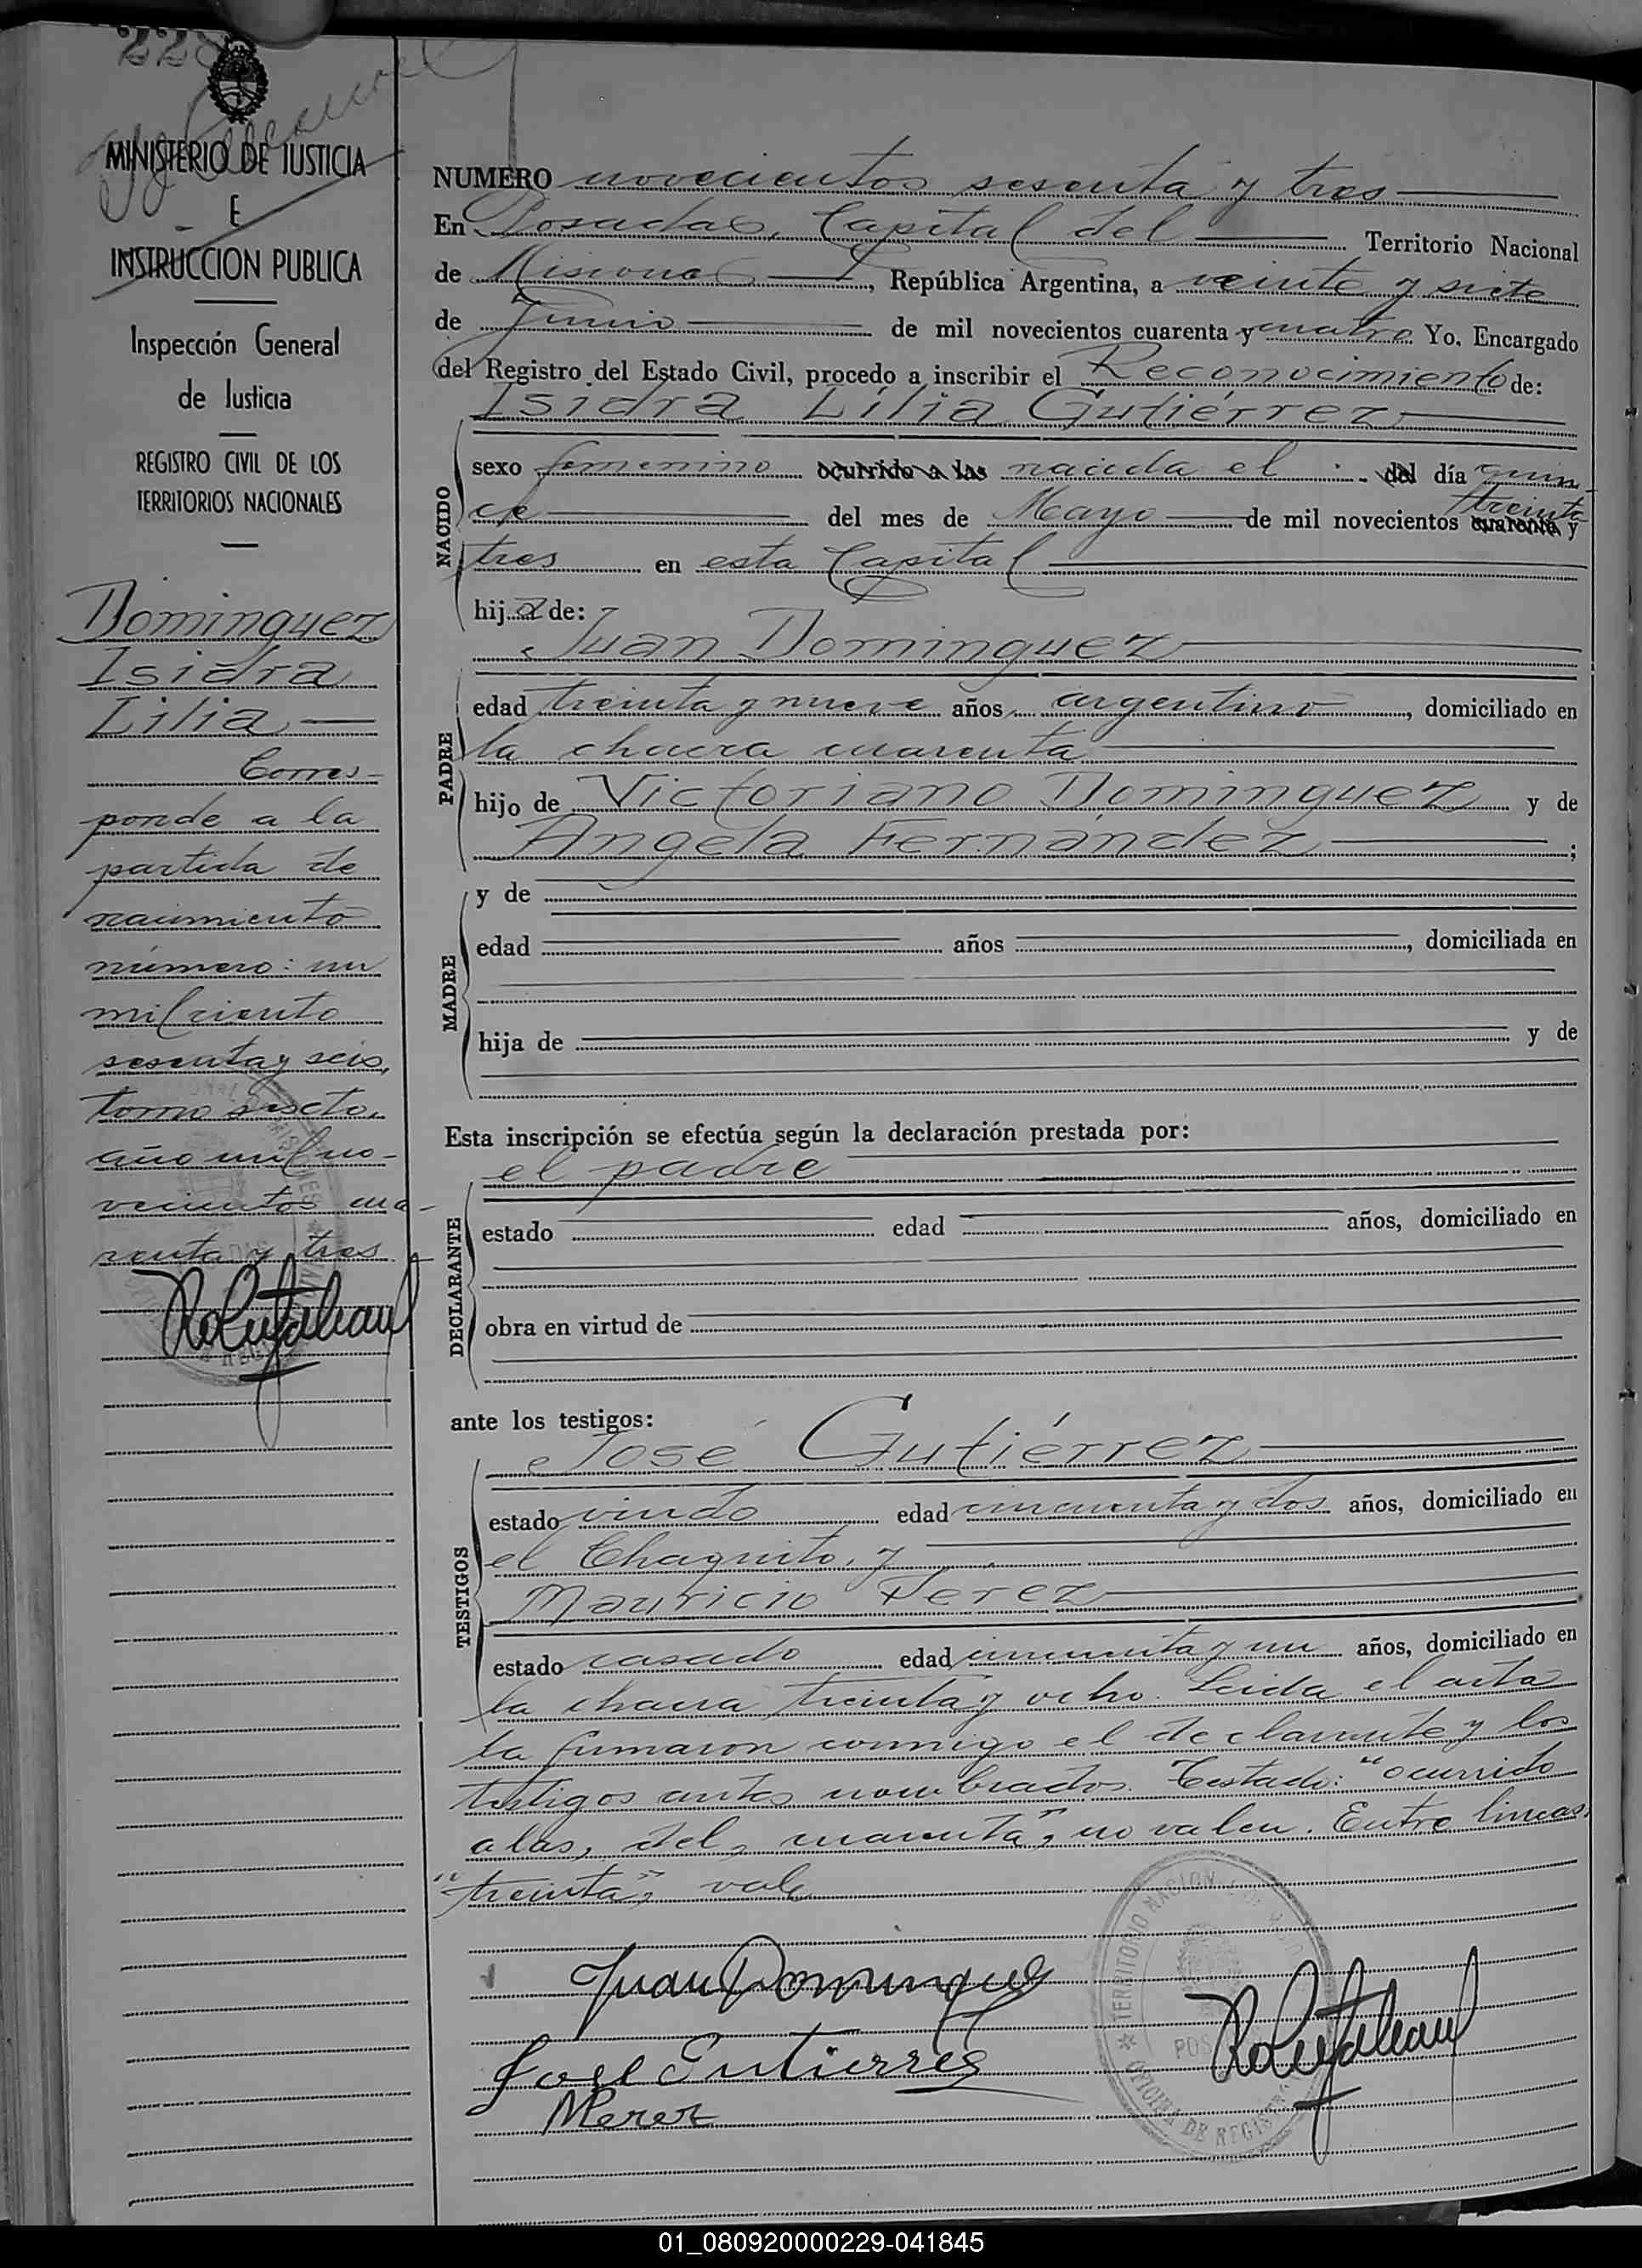 228
MINISTERIO DE JUSTICIA
E
INSTRUCCION PUBLICA
Inspección General
de Justicia
REGISTRO CIVIL DE LOS
TERRITORIOS NACIONALES
Dominguez
Isidra
Lilia
Corres-
ponde a la
partida de
nacimiento
número: un
mil ciento
sesenta y seis,
tomo sexto,
año mil no-
vecientos cua-
renta y tres
NUMERO novecientos sesenta y tres
En Posadas, Capital del Territorio Nacional
de Misiones, República Argentina, a veinte y siete
de Junio de mil novecientos cuarenta y cuatro Yo. Encargado
del Registro del Estado Civil, procedo a inscribir el Reconocimiento de:
Isidra Lilia Gutiérrez
NACIDO
sexo femenino ocurrido a las nacida el del día quin-
ce del mes de Mayo de mil novecientos cuarenta y treinta
tres en esta Capital
hija de:
Juan Dominguez
PADRE
edad treinta y nueve años, argentino, domiciliado en
la chacra cuarenta
hijo de Victoriano Dominguez y de
Angela Fernández;
MADRE
y de
edad años, domiciliada en
hija de y de
Esta inscripción se efectúa según la declaración prestada por:
el padre
DECLARANTE
estado edad años, domiciliado en
obra en virtud de
ante los testigos:
José Gutiérrez
TESTIGOS
estado viudo edad cincuenta y dos años, domiciliado en
el Chaquito, y
Mauricio Perez
estado casado edad cincuenta y un años, domiciliado en
la chacra treinta y ocho. Leida el acta
la firmaron conmigo el declarante y los
testigos antes nombrados. Testado: "ocurrido
a las, del, cuarenta", no valen. Entre lineas:
"treinta", vale
Juan Dominguez
José Gutierrez
MPerez
TERRITORIO NACIONAL
OFICINA DE REGISTRO
01_080920000229-041845